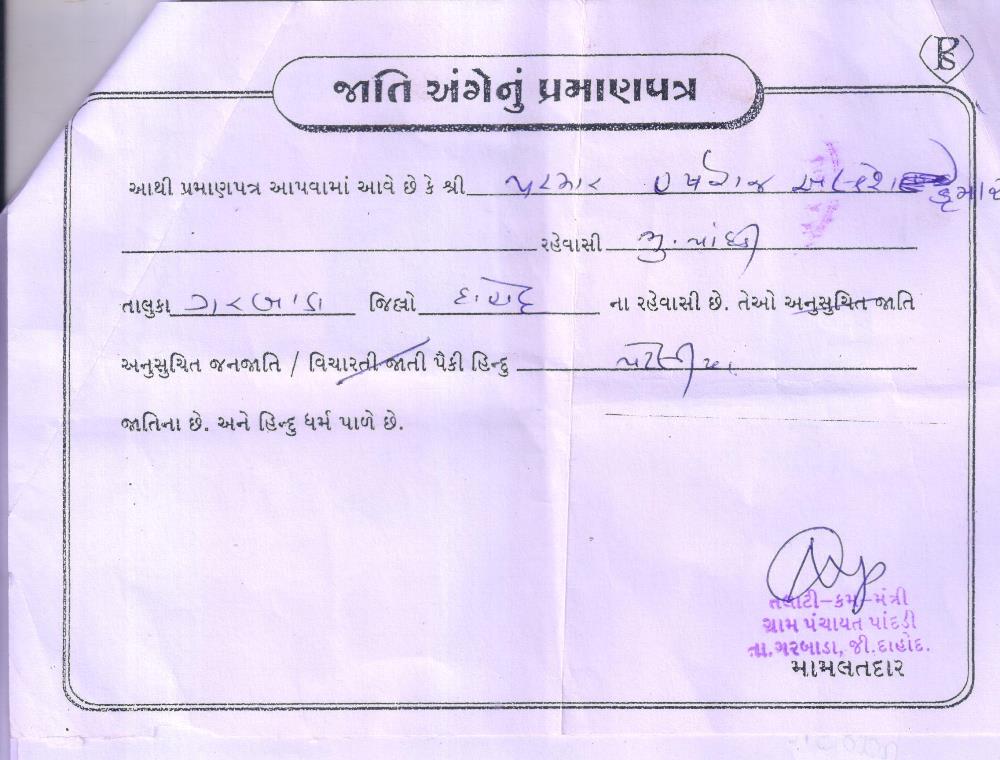 જાતિ અંગેનું પ્રમાણપત્ર
આથી પ્રમાણપત્ર આપવામાં આવે છે કે શ્રી પરમાર હર્ષરાજ
રહેવાસી મુ. પાંદડી
તાલુકા ગરબાડા જિલ્લો દાહોદ ના રહેવાસી છે. તેઓ અનુસુચિત જાતિ
અનુસુચિત જનજાતિ / વિચારતી જાતી પૈકી હિન્દુ પટેલીયા
જાતિના છે. અને હિન્દુ ધર્મ પાળે છે.
તલાટી-કમ-મંત્રી
ગ્રામ પંચાયત પાંદડી
તા.ગરબાડા, જી.દાહોદ.
મામલતદાર